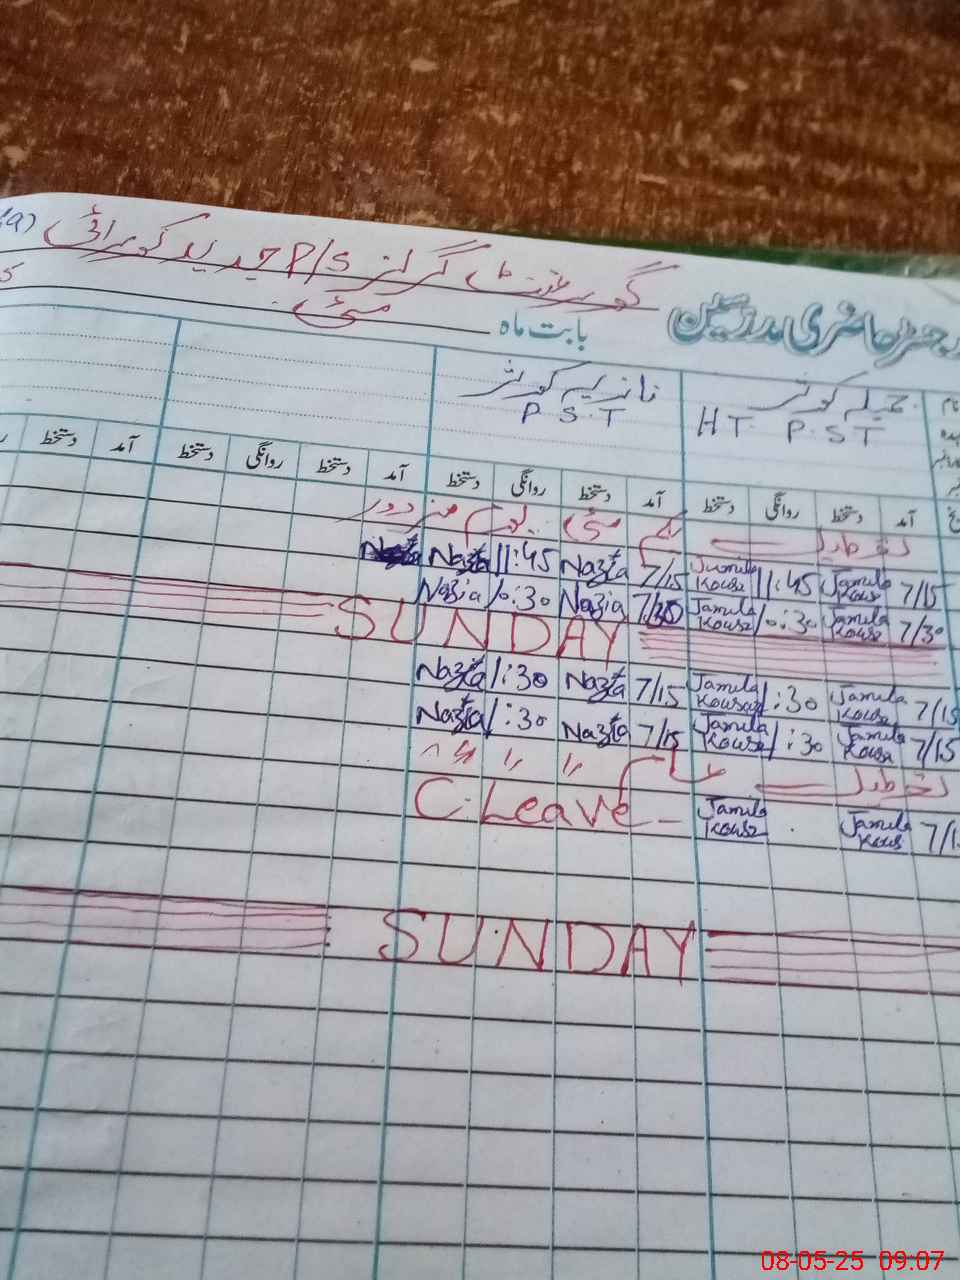 گورنمنٹ گرلز P/S جدید گوہرائی
رجسٹر حاضری مدرسین
بابت ماہ مئی
جمیلہ کوثر نازیہ کوثر
HT P.S.T P.S.T
آمد دستخط روانگی دستخط آمد دستخط روانگی دستخط آمد دستخط روانگی دستخط آمد دستخط
یکم مئی یوم مزدور
7/15 Jamila Kousr 11:45 Jamila Kousr 7/15 Nazia 11:45 Nazia
7/30 Jamila Kousr 10:30 Jamila Kousr 7/30 Nazia 10:30 Nazia
SUNDAY
7/15 Jamila Kousr 1:30 Jamila Kousar 7/15 Nazia 1:30 Nazia
7/15 Jamila Kousr 1:30 Jamila Kousr 7/15 Nazia 1:30 Nazia
" " "
Jamila Kous Jamila Kousr C.Leave
SUNDAY
08-05-25 09.07